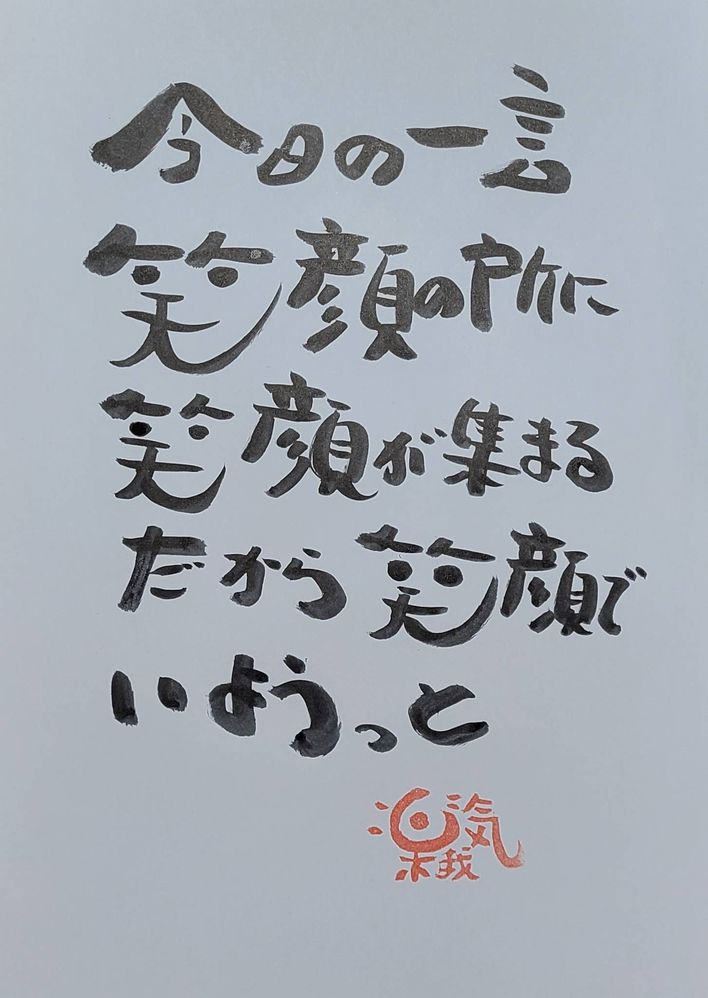 今日の一言
笑顔の所に
笑顔が集まる
だから笑顔で
いようっと